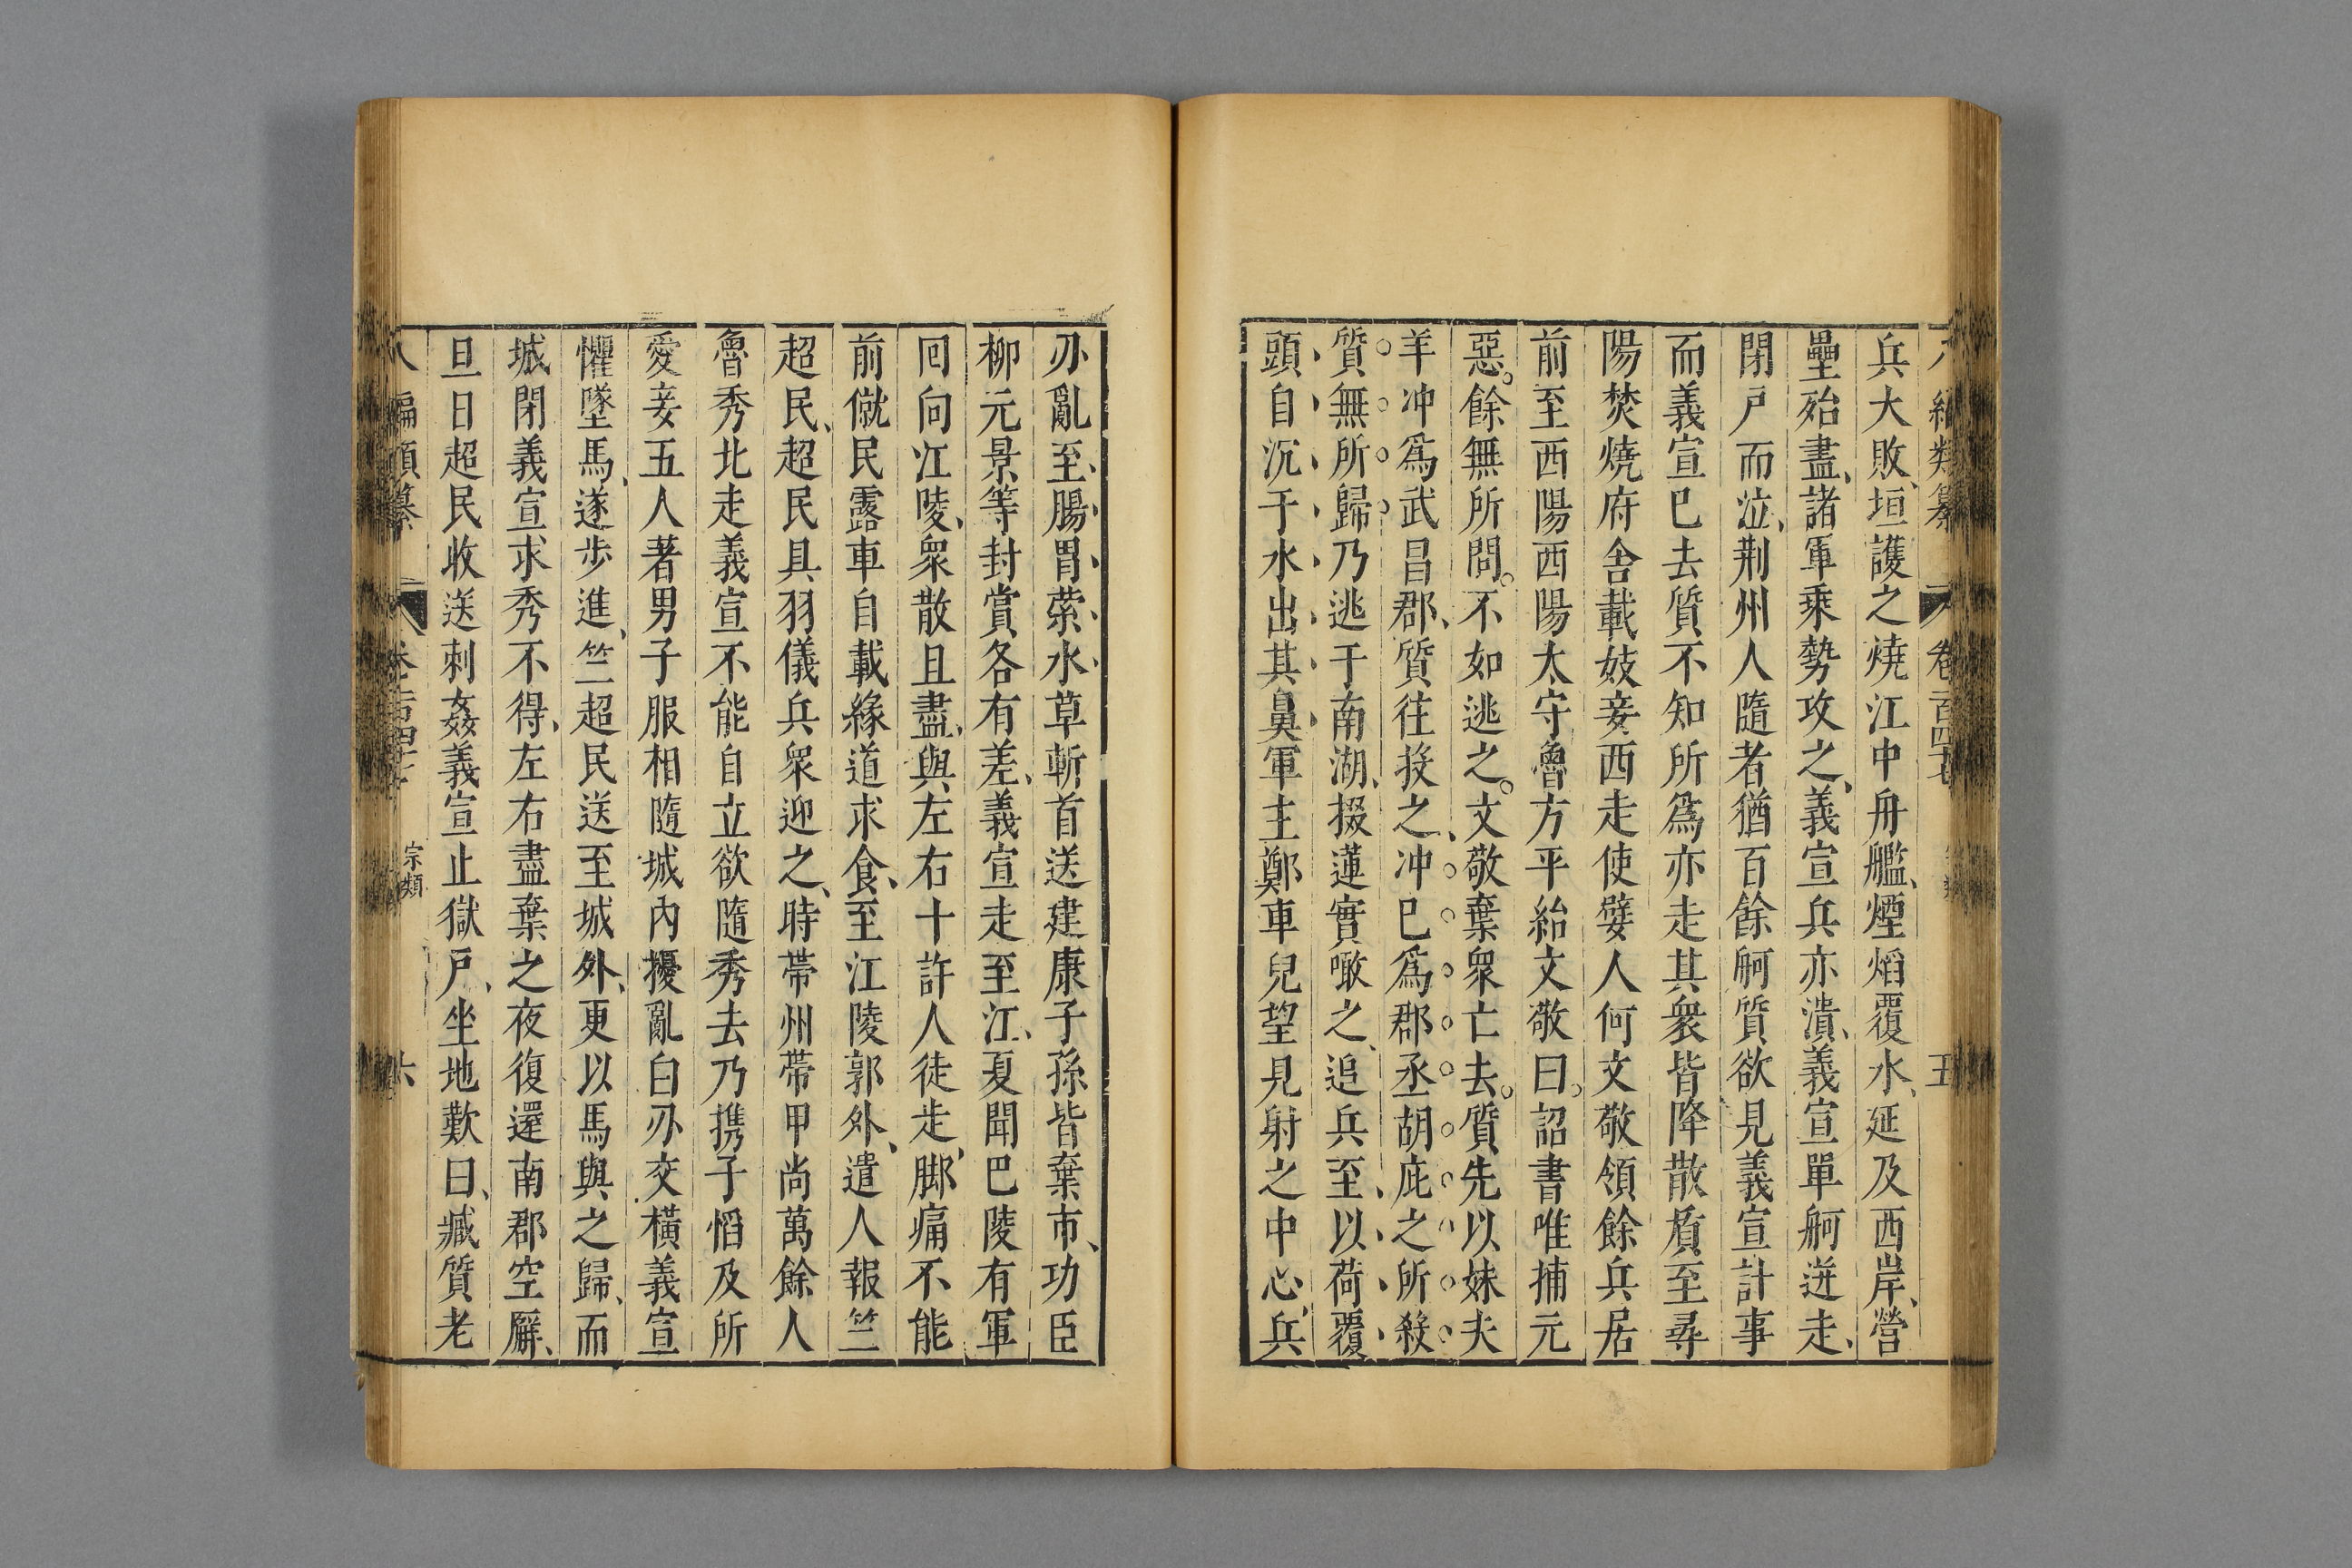 兵大敗、垣護之燒江中舟艦、煙焰覆水、延及西岸、營
壘殆盡、諸軍乘勢攻之、義宣兵亦潰、義宣單舸迸走、
閉戶而泣、荆州人隨者猶百餘舸質欲見義宣計事
而義宣已去質不知所爲亦走其衆皆降散質至尋
陽焚燒府舍載妓妾西走使嬖人何文敬領餘兵居
前至西陽西陽太守魯方平紿文敬曰。詔書唯捕元
惡。餘無所問。不如逃之。文敬棄衆亡去。質先以妹夫
羊冲爲武昌郡、質往投之、冲已爲郡丞胡庇之所殺
質無所歸乃逃于南湖、掇蓮實噉之、追兵至、以荷覆
頭自沉于水出其鼻軍主鄭車兒望見射之中心、兵
刅亂至、腸胃縈水草斬首送建康子孫皆棄市、功臣
柳元景等封賞各有差、義宣走至江、夏聞巴陵有軍
回向江陵、衆散且盡、與左右十許人徒走、脚痛不能
前僦民露車自載緣道求食、至江陵郭外、遣人報竺
超民、超民具羽儀兵衆迎之、時帶州帶甲尚萬餘人
魯秀北走義宣不能自立欲隨秀去乃携子慆及所
愛妾五人著男子服相隨城內擾亂白刅交橫義宣
懼墜馬、遂步進、竺超民送至城外、更以馬與之歸、而
城閉義宣求秀不得、左右盡棄之夜復還南郡空廨、
旦日超民收送刺姦義宣止獄戶、坐地歎曰、臧質老
八編類纂 卷二百四十七 宗類 六